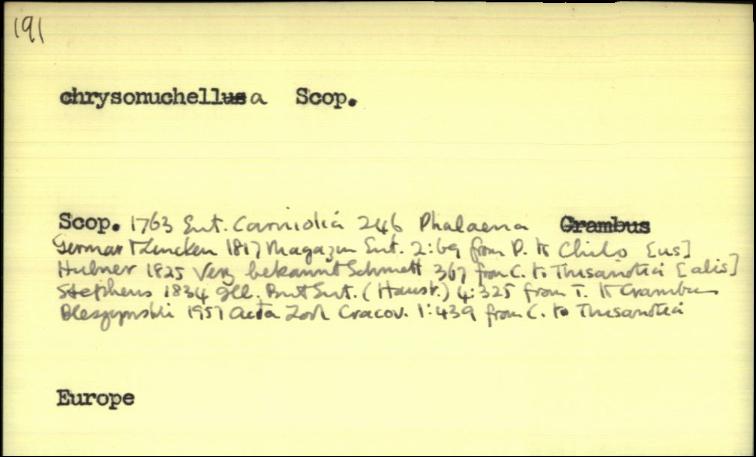 191
chrysonuchellusa Scop.
Scop. 1763 Ent. Carniolia 246 Phalaena Crambus
Germar & Zincken 1817 Magazin Ent. 2:69 from P. to Chilo [us]
Hubner 1825 Verz bekannt Schmett 367 from C. to Thisanotia [alis]
Stephens 1834 Ill. Brit Ent. (Haust.) 4:325 from T. to Crambus
Bleszynski 1957 Acta Zool Cracov. 1:439 from C. to Thisanotia
Europe